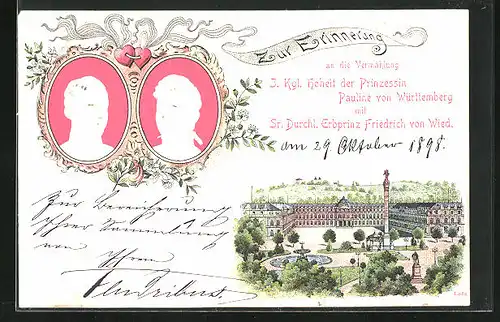 Zur Erinnerung
an die Vermählung
I. Kgl. Hoheit der Prinzessin
Pauline von Württemberg
mit
Sr. Durchl. Erbprinz Friedrich von Wied.
am 29 Oktober 1898.
Zur Bereicherung
Ihrer Sammlung
von
Ihrem